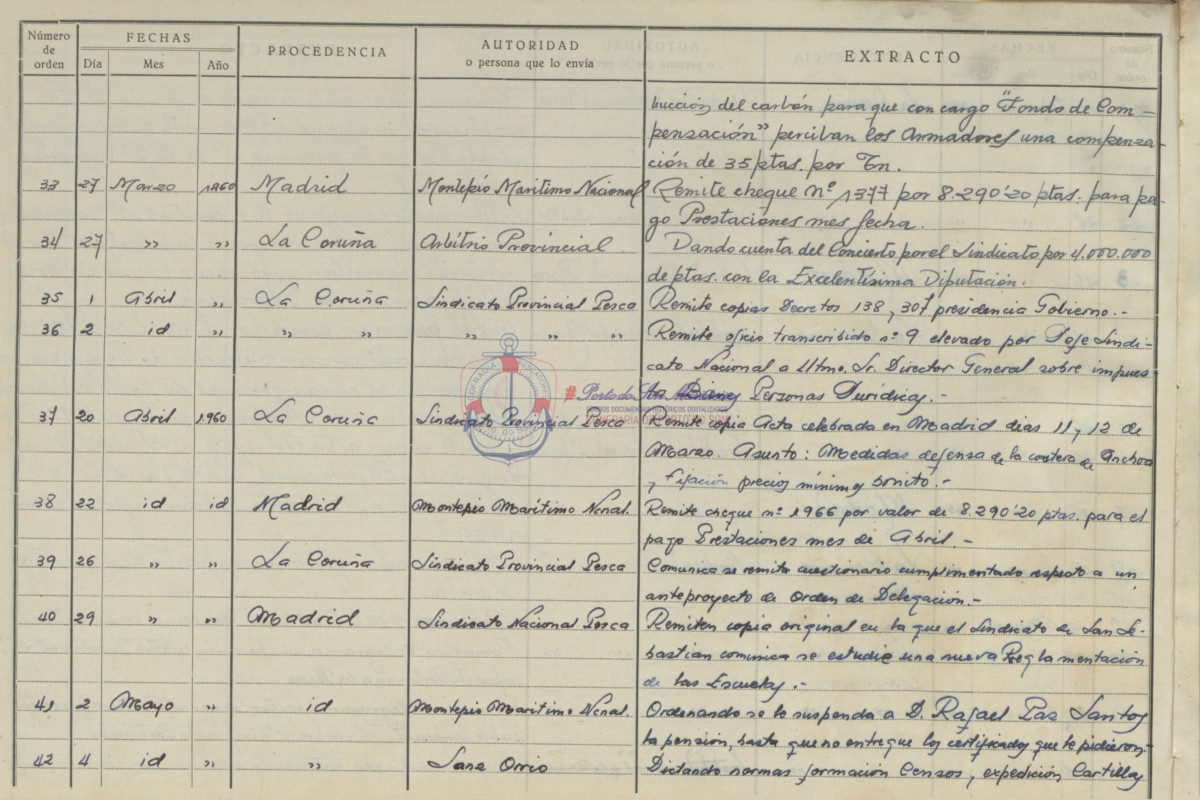 Número de orden FECHAS PROCEDENCIA AUTORIDAD o persona que lo envía EXTRACTO
Día Mes Año
bución del carbón para que con cargo "Fondo de Com-
pensación" perciban los Armadores una compensa-
ción de 35 ptas. por Tn.
33 27 Marzo 1960 Madrid Montepío Marítimo Nacional Remite cheque Nº 1377 por 8.290'20 ptas. para pa-
go Prestaciones mes fecha.
34 27 " " La Coruña Arbitrio Provincial Dando cuenta del Concierto por el Sindicato por 4.000.000
de ptas. con la Excelentísima Diputación.
35 1 Abril " La Coruña Sindicato Provincial Pesca Remite copias Decretos 138, 307 presidencia Gobierno.-
36 2 id " " " " " " Remite oficio transcribido nº 9 elevado por Jefe Sindi-
cato Nacional a Iltmo. Sr. Director General sobre impues
Bienes Personas Jurídicas.-
37 20 Abril 1960 La Coruña Sindicato Provincial Pesca Remite copia Acta celebrada en Madrid dias 11 y 12 de
Marzo. Asunto: Medidas defensa de la costera de Anchoa
y fijación precios mínimos bonito.-
38 22 id id Madrid Montepio Marítimo Ncnal. Remite cheque nº 1966 por valor de 8.290'20 ptas. para el
pago Prestaciones mes de Abril.-
39 26 " " La Coruña Sindicato Provincial Pesca Comunica se remita cuestionario cumplimentado respecto a un
anteproyecto de Orden de Delegación.-
40 29 " " Madrid Sindicato Nacional Pesca Remiten copia original en la que el Sindicato de San Se-
bastian comunica se estudie una nueva Reglamentación
de las Escuelas.-
41 2 Mayo " id Montepio Marítimo Ncnal. Ordenando se le suspenda a D. Rafael Paz Santos
la pensión, hasta que no entregue los certificados que le pidieron.
42 4 id " " Dictando normas formación Censos, expedición Cartillas